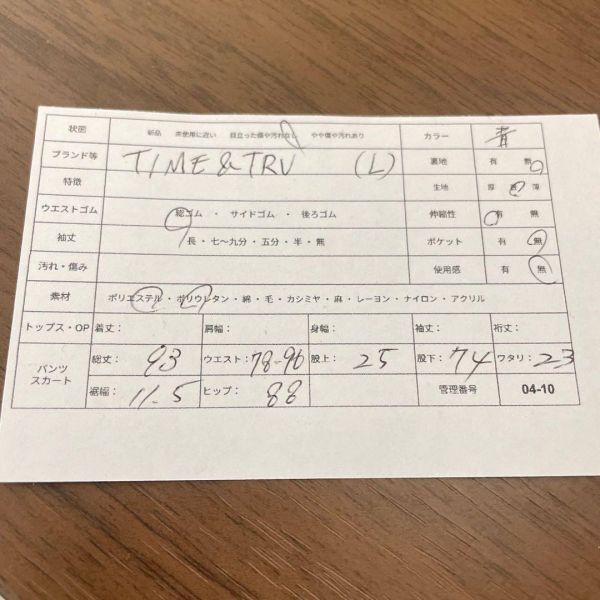 状態 新品 未使用に近い 目立った傷や汚れなし やや傷や汚れあり カラー 青
ブランド等 TIME & TRU (L) 裏地 有 無
特徴 生地 厚 普 薄
ウエストゴム 総ゴム ・ サイドゴム ・ 後ろゴム 伸縮性 有 無
袖丈 長・七〜九分・五分・半・無 ポケット 有 無
汚れ・傷み 使用感 有 無
素材 ポリエステル・ポリウレタン・綿・毛・カシミヤ・麻・レーヨン・ナイロン・アクリル
トップス・OP 着丈: 肩幅: 身幅: 袖丈: 裄丈:
パンツ スカート 総丈: 93 ウエスト: 78-96 股上: 25 股下: 74 ワタリ: 23
裾幅: 11.5 ヒップ: 88 管理番号 04-10